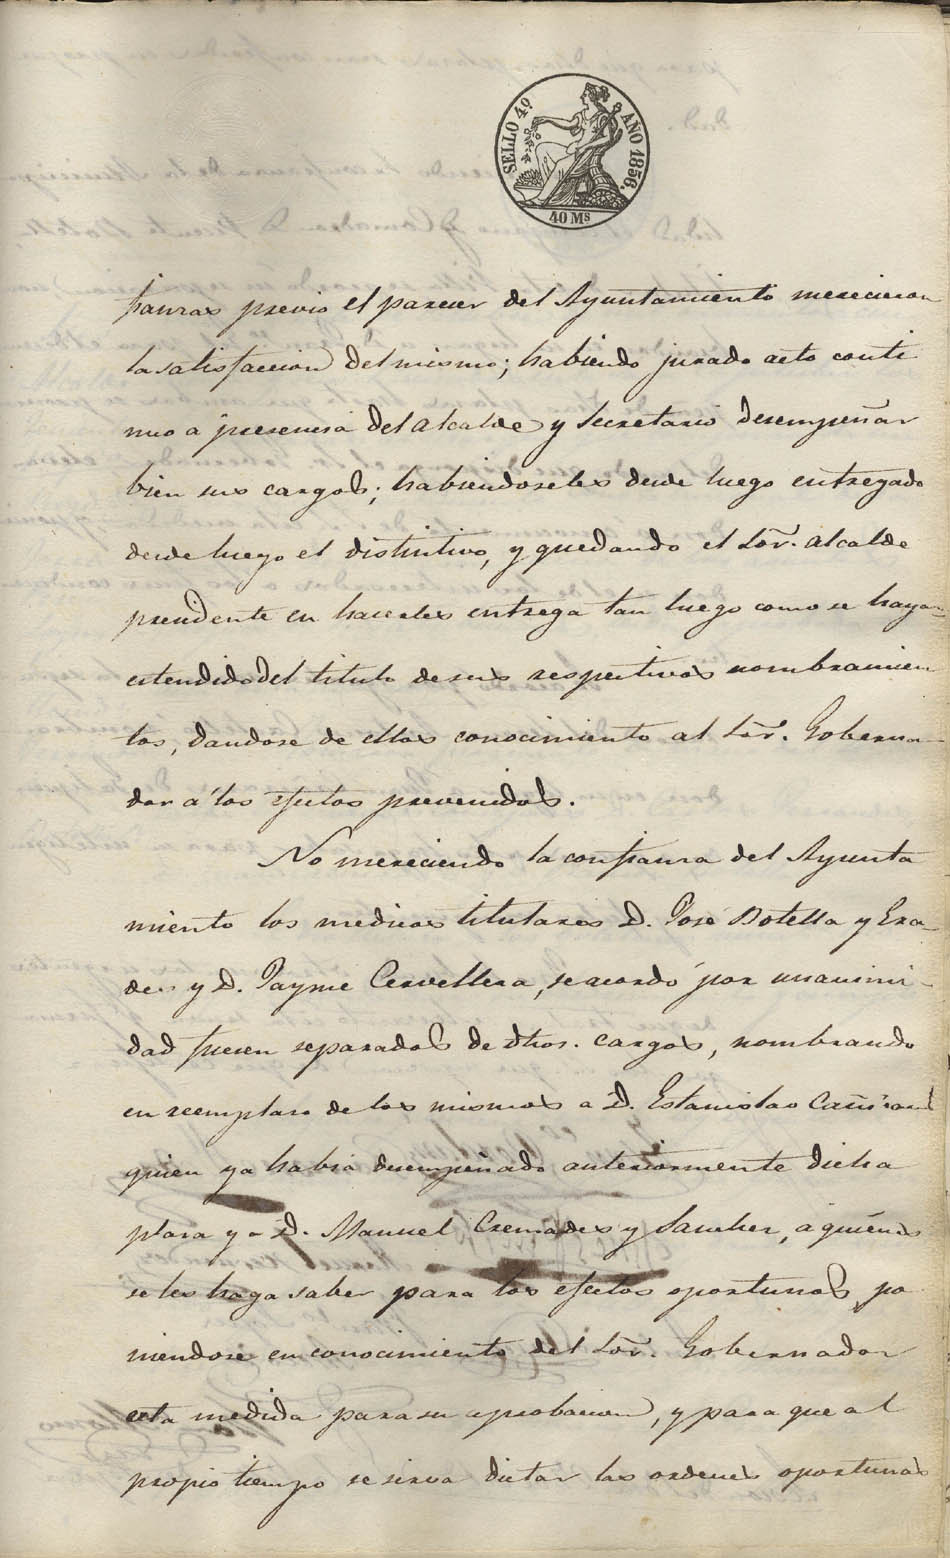 SELLO 4º AÑO 1856.
40 Ms
fianzas previo el parecer del Ayuntamiento merecieron
la satisfaccion del mismo; habiendo jurado acto conti
nuo á presencia del Alcalde y Secretario desempeñar
bien sus cargos; habiendoseles desde luego entregado
desde luego el distintivo, y quedando el Sor. Alcalde
prendente en hacerles entrega tan luego como se hayan
estendido del titulo de sus respectivos nombramien
tos, dandose de ellos conocimiento al Sor. Goberna-
dor á los efectos prevenidos.
No mereciendo la confianza del Ayunta
miento los medicos titulares D. José Botella y
y D. Jayme Cervellera, se acordó por unanimi-
dad fuesen separados de dhos. cargos, nombrando
en reemplazo de los mismos a D. Estanislao
quien ya habia desempeñado anteriormente dicha
plaza y a D. Manuel Cremades y Sanchez, a quienes
se les haga saber para los efectos oportunos, po
niendose en conocimiento del Sor. Gobernador
esta medida para su aprobacion, y para que al
propio tiempo se sirva dictar las ordenes oportunas